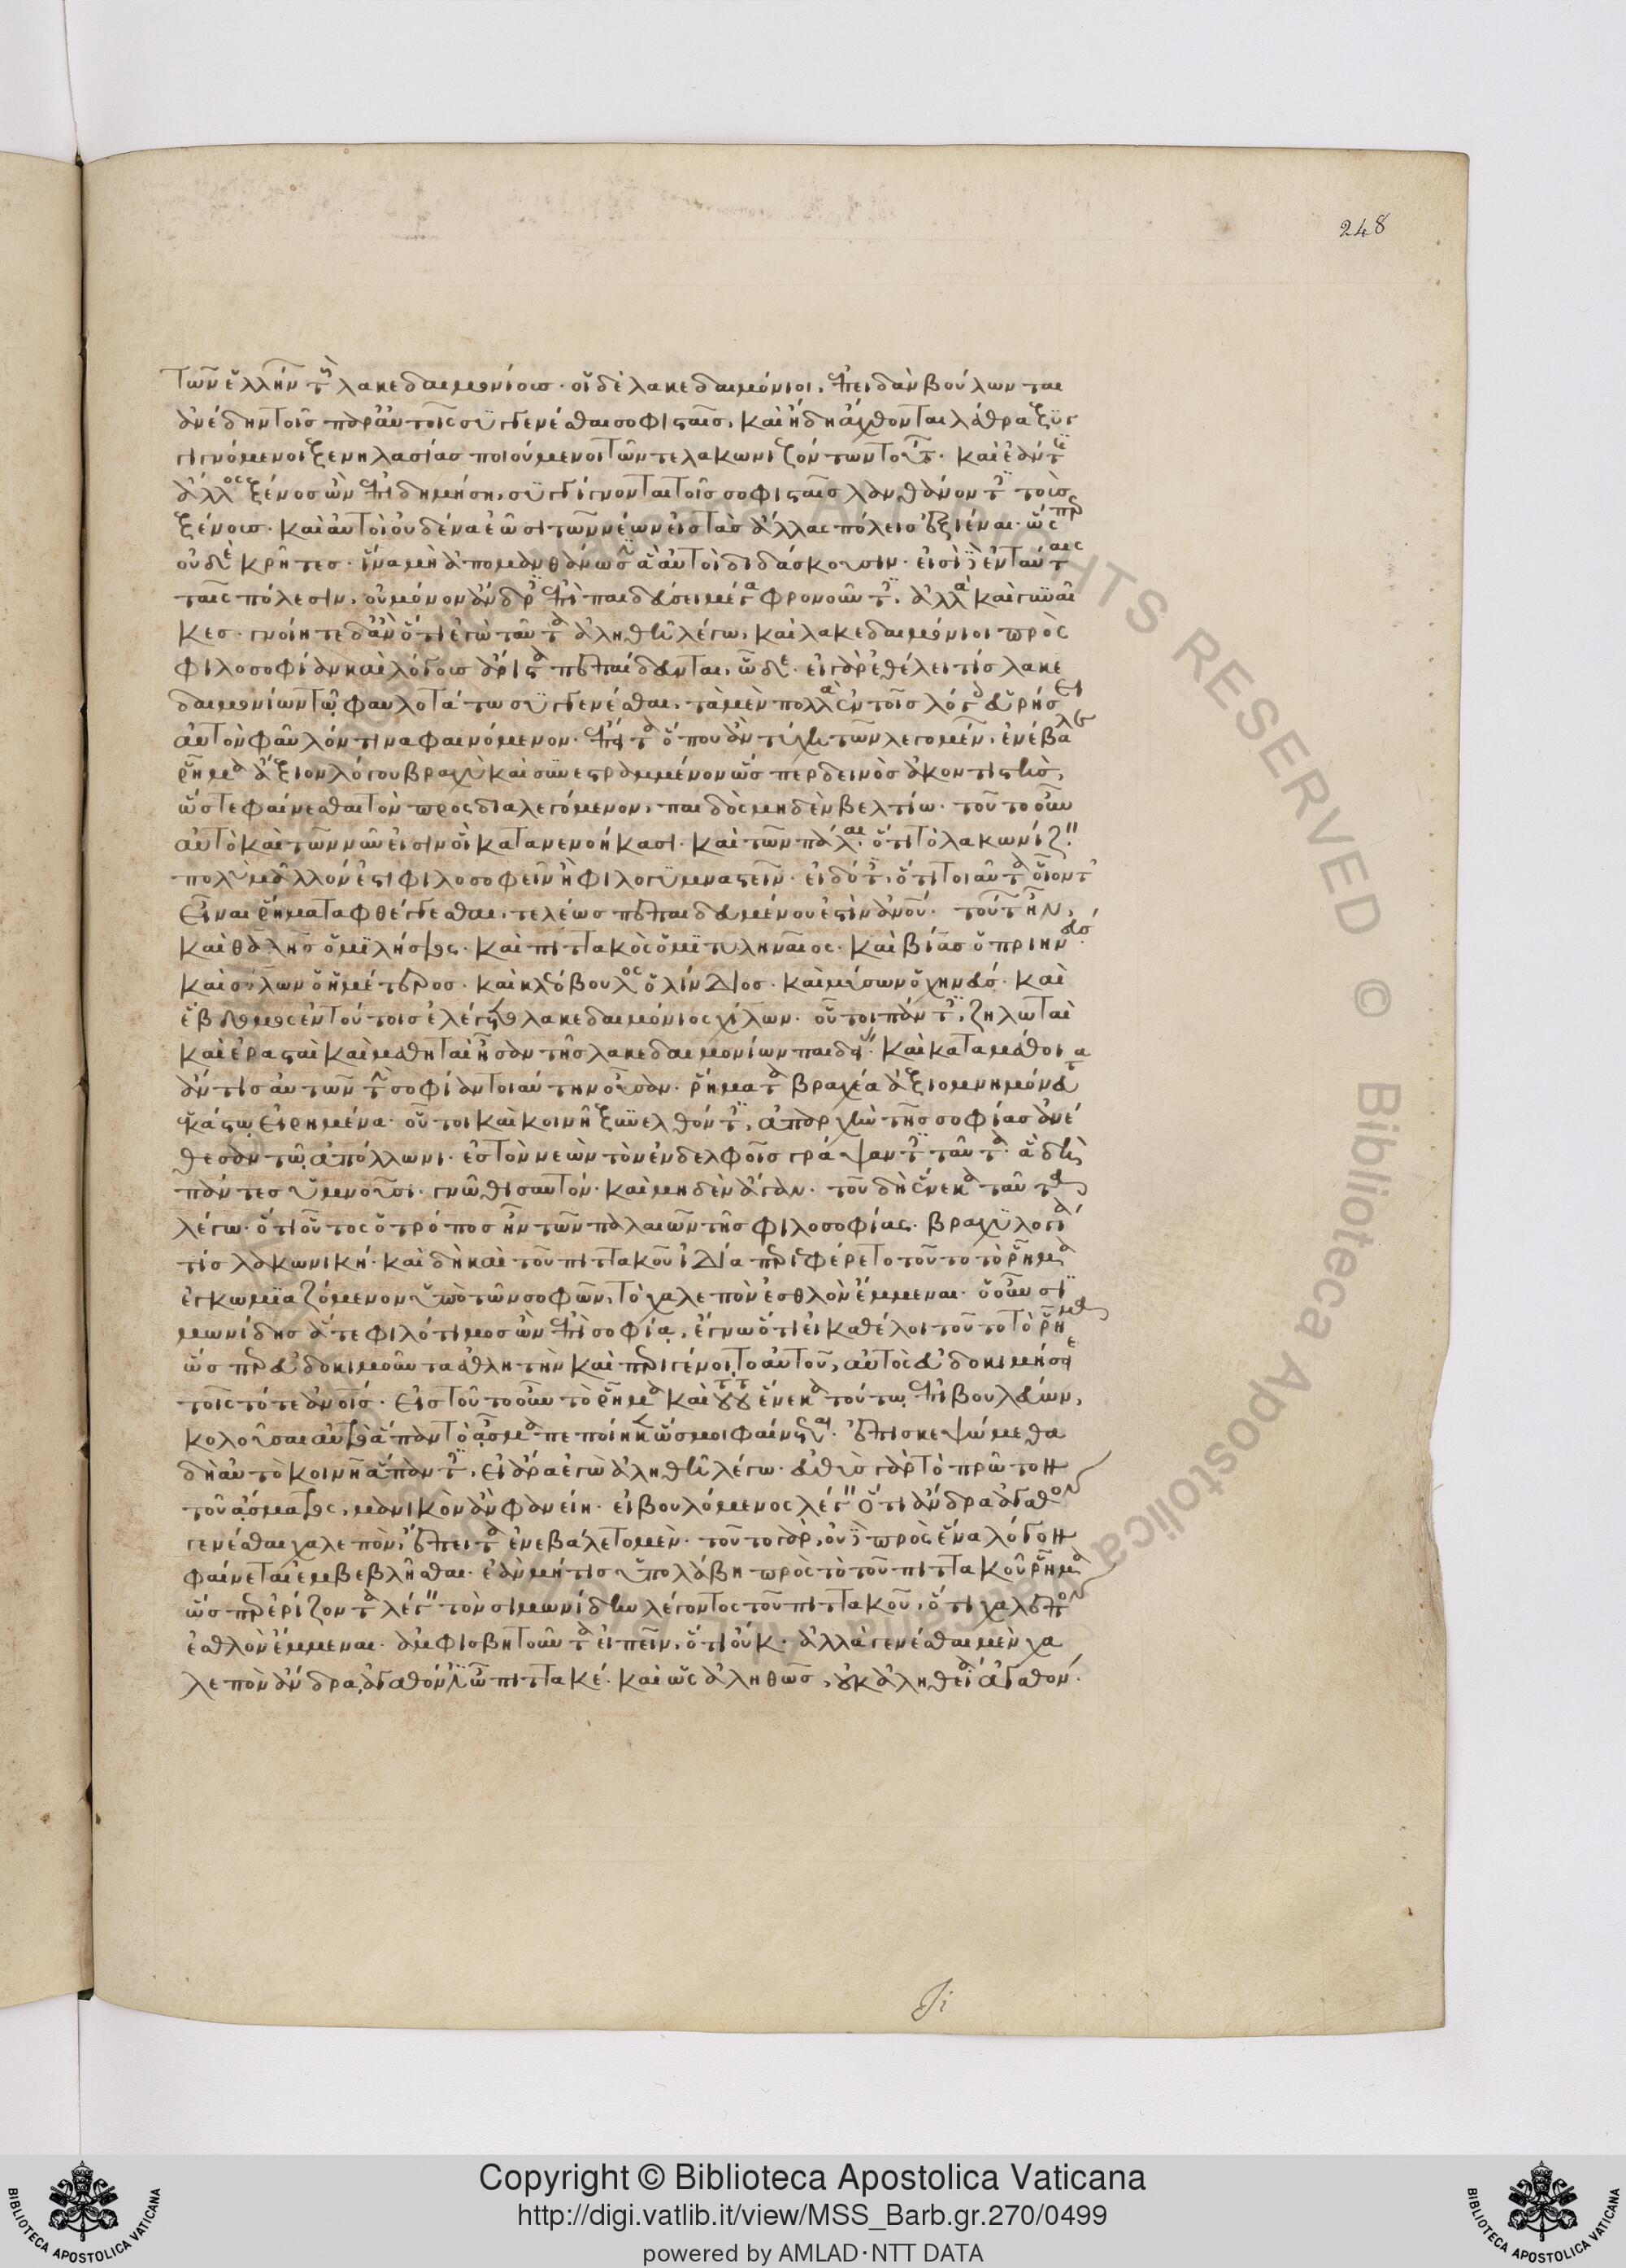 248
τῶν ἑλλήνων τοῖς λακεδαιμονίοις· οἱ δὲ λακεδαιμόνιοι, ἐπειδὰν βούλωνται
ἀνέδην τοῖς παρ' αὐτοῖς συγγενέσθαι σοφισταῖς, καὶ ἤδη ἄχθονται λάθρα ξυγ
γιγνόμενοι ξενηλασίας ποιούμενοι τῶν τε λακωνιζόντων τούτων· καὶ ἐάν τις
ἄλλος ξένος ὢν ἐπιδημήσῃ, συγγίγνονται τοῖς σοφισταῖς λανθάνοντες τοὺς
ξένους· καὶ αὐτοὶ οὐδένα ἐῶσι τῶν νέων εἰς τὰς ἄλλας πόλεις ἐξιέναι· ὥσπερ
οὐδὲ κρῆτες· ἵνα μὴ ἀπομανθάνωσιν ἃ αὐτοὶ διδάσκουσιν· εἰσὶ δὲ ἐν ταύταις
ταῖς πόλεσιν, οὐ μόνον ἄνδρες ἐπὶ παιδεύσει μέγα φρονοῦντες, ἀλλὰ καὶ γυναῖ
κες· γνοίητε δ' ἂν ὅτι ἐγὼ ταῦτα ἀληθῆ λέγω, καὶ λακεδαιμόνιοι πρὸς
φιλοσοφίαν καὶ λόγους ἄριστα πεπαίδευνται, ὧδε· εἰ γὰρ ἐθέλει τίς λακε
δαιμονίων τῷ φαυλοτάτῳ συγγενέσθαι, τὰ μὲν πολλὰ ἐν τοῖς λόγοις εὑρήσει
αὐτὸν φαῦλόν τινα φαινόμενον· ἔπειτα ὅπου ἂν τύχῃ τῶν λεγομένων, ἐνέβαλε
ῥῆμα ἄξιον λόγου βραχὺ καὶ συνεστραμμένον ὥσπερ δεινὸς ἀκοντιστὴς,
ὥστε φαίνεσθαι τὸν προςδιαλεγόμενον, παιδὸς μηδὲν βελτίω· τοῦτο οὖν
αὐτὸ καὶ τῶν νῦν εἰσὶν οἳ κατανενοήκασι· καὶ τῶν πάλαι· ὅτι τὸ λακωνίζειν
πολὺ μᾶλλόν ἐστι φιλοσοφεῖν ἢ φιλογυμναστεῖν· εἰδότες, ὅτι τοιαῦτα οἷόν τ'
εἶναι ῥήματα φθέγγεσθαι, τελέως πεπαιδευμένου ἐστὶν ἀνθρώπου· τούτων ἦν,
καὶ θαλῆς ὁ μιλήσιος· καὶ πιττακὸς ὁ μιτυληναῖος· καὶ βίας ὁ πριηνεύς·
καὶ σόλων ὁ ἡμέτερος· καὶ κλεόβουλος ὁ λίνδιος· καὶ μύσων ὁ χηνεύς· καὶ
ἕβδομος ἐν τούτοις ἐλέγετο λακεδαιμόνιος χίλων· οὗτοι πάντες, ζηλωταὶ
καὶ ἐρασταὶ καὶ μαθηταὶ ἦσαν τῆς λακεδαιμονίων παιδείας· καὶ καταμάθοι
ἄν τις αὐτῶν τὴν σοφίαν τοιαύτην οὖσαν· ῥήματα βραχέα ἀξιομνημόνευτα
ἑκάστῳ εἰρημένα· οὗτοι καὶ κοινῇ ξυνελθόντες, ἀπαρχὴν τῆς σοφίας ἀνέ
θεσαν τῷ ἀπόλλωνι· ἐς τὸν νεὼν τὸν ἐν δελφοῖς γράψαντες ταῦτα· ἃ δὴ
πάντες ὑμνοῦσι· γνῶθι σαυτόν· καὶ μηδὲν ἄγαν· τοῦ δὴ ἕνεκα ταῦτα
λέγω· ὅτι οὗτος ὁ τρόπος ἦν τῶν παλαιῶν τῆς φιλοσοφίας· βραχυλογία
τὶς λακωνική· καὶ δὴ καὶ τοῦ πιττακοῦ ἰδίᾳ περιεφέρετο τοῦτο τὸ ῥῆμα
ἐγκωμιαζόμενον ὑπὸ τῶν σοφῶν, τὸ χαλεπὸν ἐσθλὸν ἔμμεναι· ὁ οὖν σι
μωνίδης ἅτε φιλότιμος ὢν ἐπὶ σοφίᾳ, ἔγνω ὅτι εἰ καθέλοι τοῦτο τὸ ῥῆμα
ὥσπερ εὐδοκιμοῦντα ἀθλητὴν καὶ περιγένοιτο αὐτοῦ, αὐτὸς εὐδοκιμήσει
τοῖς τότε ἀνθρώποις· εἰς τοῦτο οὖν τὸ ῥῆμα καὶ τούτου ἕνεκα τούτῳ ἐπιβουλεύων,
κολοῦσαι αὐτὸ ἅπαν τὸ ᾆσμα πεποίηκεν ὥς μοι φαίνεται· ἐπισκεψώμεθα
δὴ αὐτὸ κοινῇ ἅπαντες, εἰ ἄρα ἐγὼ ἀληθῆ λέγω· εὐθὺς γὰρ τὸ πρῶτον
τοῦ ᾄσματος, μανικὸν ἂν φανείη· εἰ βουλόμενος λέγειν ὅτι ἄνδρα ἀγαθὸν
γενέσθαι χαλεπὸν, ἔπειτα ἐνεβάλετο μέν· τοῦτο γὰρ, οὐδὲ πρὸς ἕνα λόγον
φαίνεται ἐμβεβλῆσθαι· ἐὰν μή τις ὑπολάβῃ πρὸς τὸ τοῦ πιττακοῦ ῥῆμα
ὥσπερ ἐρίζοντα λέγειν τὸν σιμωνίδην λέγοντος τοῦ πιττακοῦ, ὅτι χαλεπὸν
ἐσθλὸν ἔμμεναι· ἀμφισβητοῦντα εἰπεῖν, ὅτι οὔκ· ἀλλὰ γενέσθαι μὲν χα
λεπὸν ἄνδρα ἀγαθόν ἐστιν ὦ πιττακέ· καὶ ὡς ἀληθῶς, οὐκ ἀληθείᾳ ἀγαθόν·
Copyright © Biblioteca Apostolica Vaticana
http://digi.vatlib.it/view/MSS_Barb.gr.270/0499
powered by AMLAD·NTT DATA